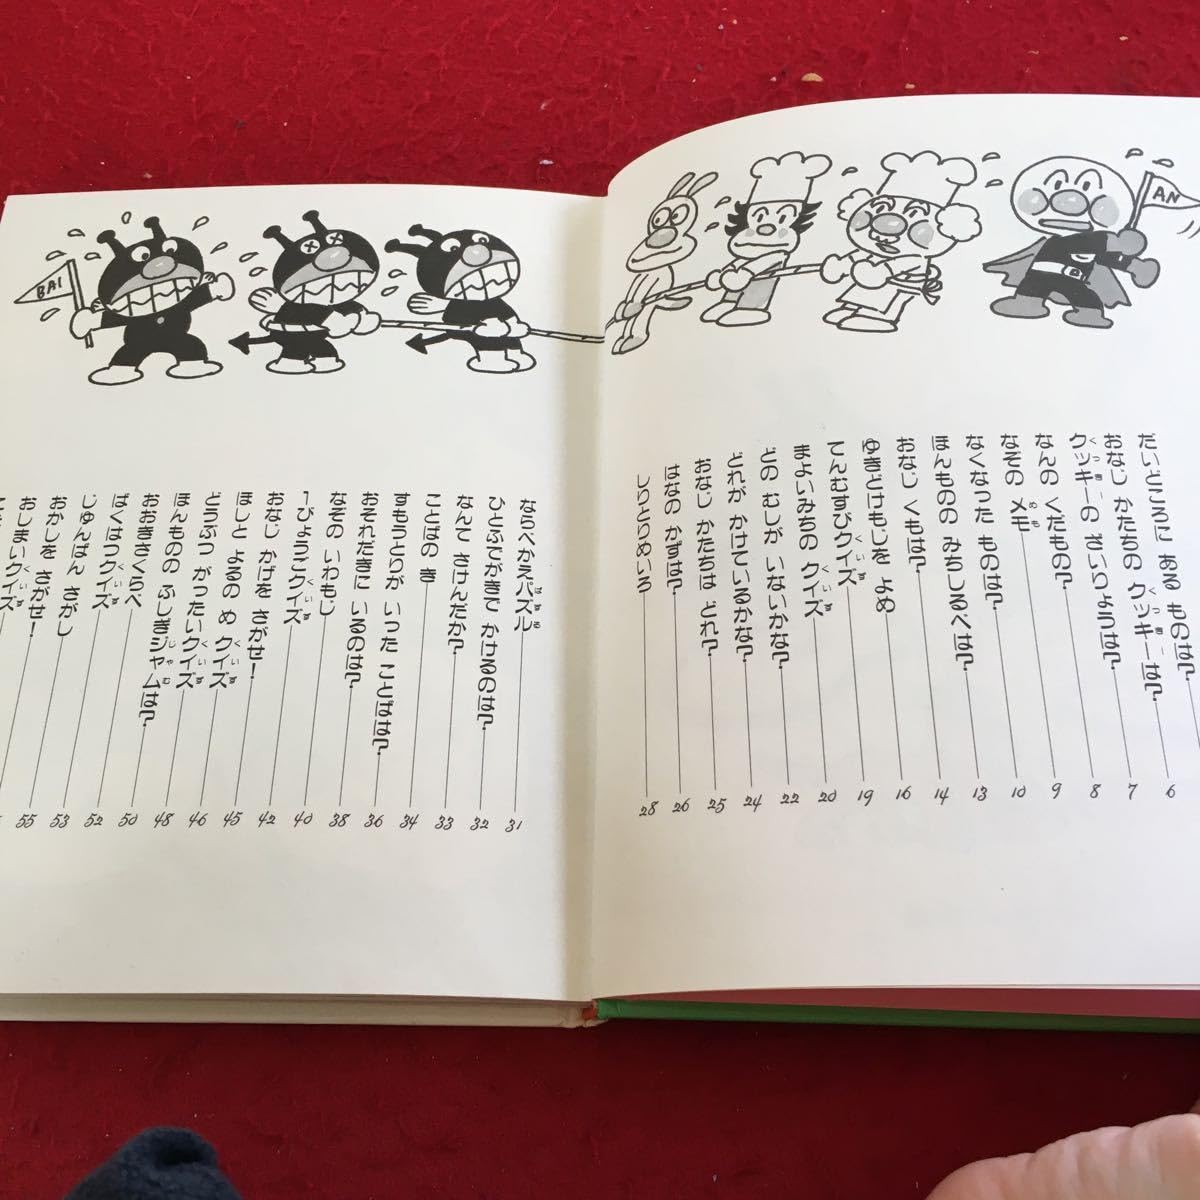 AN
BAI
だいどころに ある ものは? 6
おなじ かたちの クッキーは? 7
クッキーの ざいりょうは? 8
なんの くだもの? 9
なぞの メモ 10
なくなった ものは? 13
ほんものの みちしるべは? 14
おなじ くもは? 16
ゆきどけもじを よめ 19
てんむすびクイズ 20
まよいみちの クイズ 22
どの むしが いないかな? 24
どれが かけているかな? 25
おなじ かたちは どれ? 26
はなの かずは? 28
しりとりめいろ
ならべかえパズル 31
ひとふでがきで かけるのは? 32
なんて さけんだか? 33
ことばの き 34
すもうとりが いった ことばは? 36
おそれだきに いるのは? 38
なぞの いわもじ 40
1びょうこクイズ 42
おなじ かげを さがせ! 45
ほしと よるの め クイズ 46
どうぶつ がったいクイズ 48
ほんものの ふしぎジャムは? 50
おおきさくらべ 52
ばくはつクイズ 53
じゅんばん さがし 55
おかしを さがせ!
おしまいクイズ